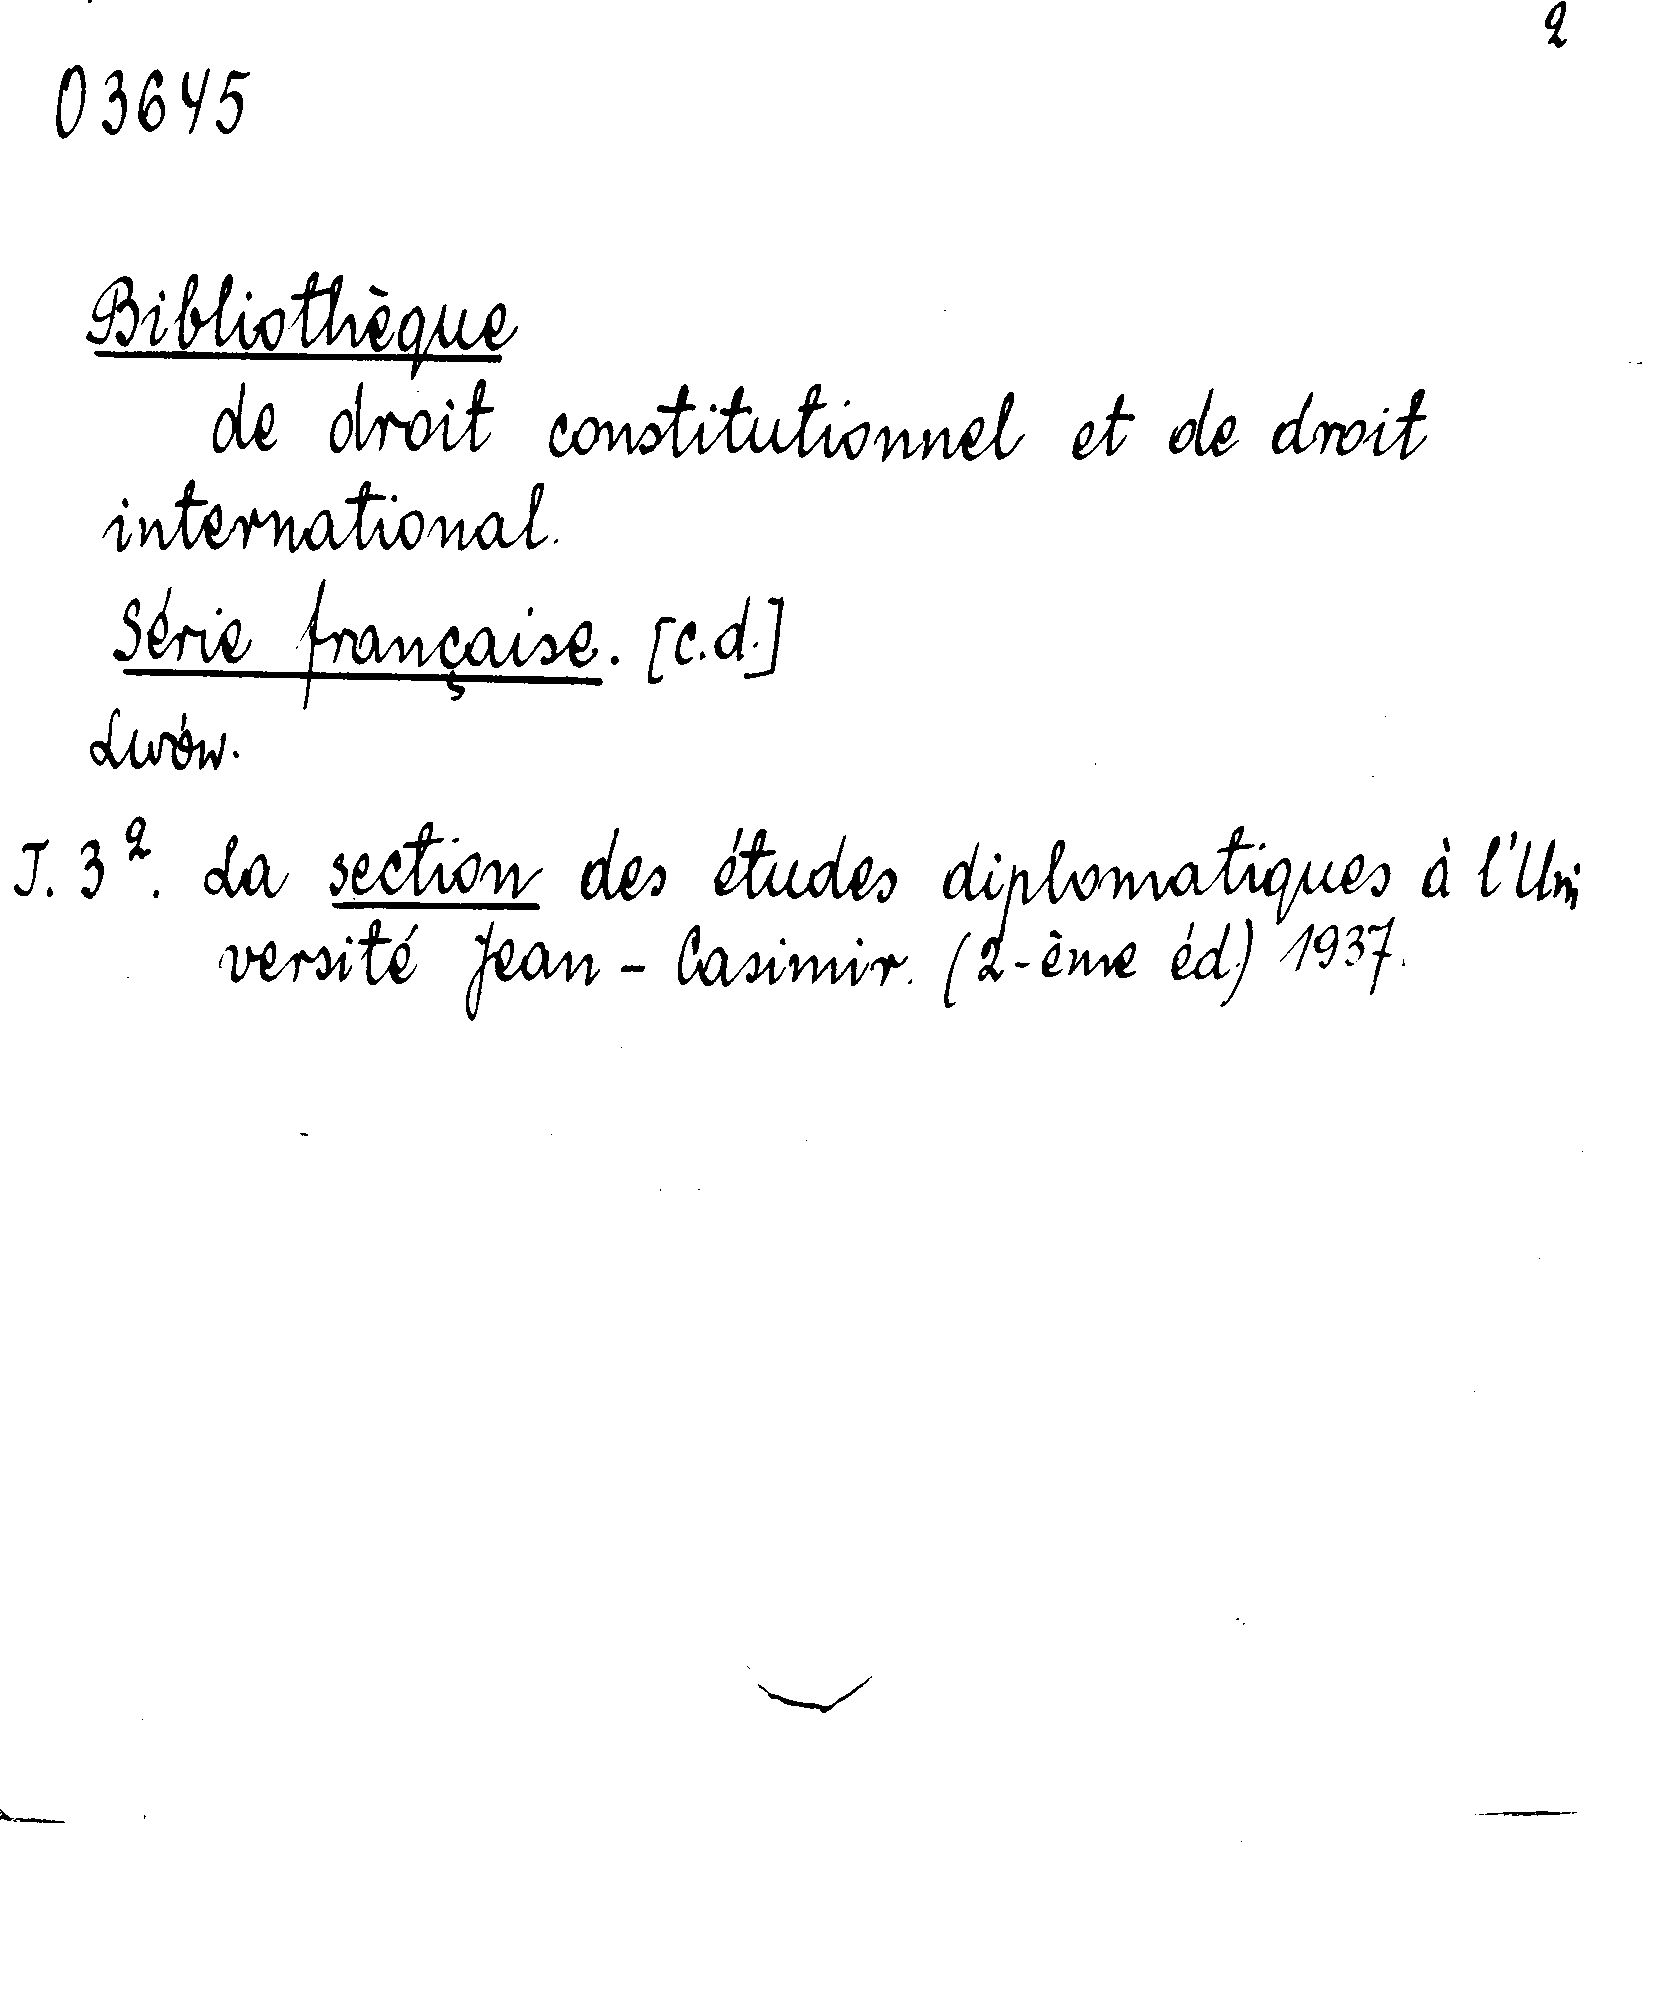 2
03645
Bibliothèque
de droit constitutionnel et de droit
international.
Série française. [c.d.]
Lwów.
T. 3². La section des études diplomatiques à l'Uni
versité Jean - Casimir. (2-ème éd) 1937.